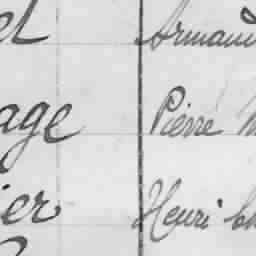 et Armand
age Pierre
ier Henri